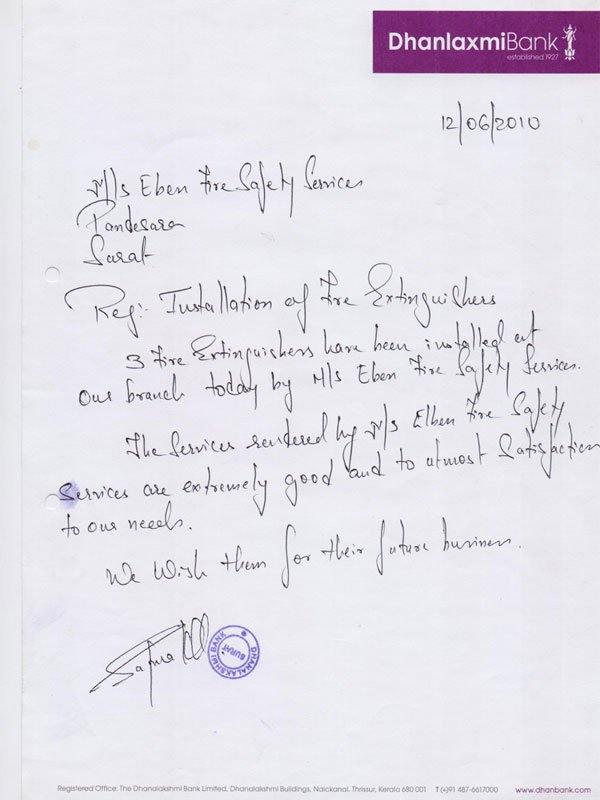 DhanlaxmiBank
established 1927
12/06/2010
M/s Eben Fire Safety Services
Pandesara
Surat
Reg:- Installation of Fire Extinguishers
3 Fire Extinguishers have been installed at
our branch today by M/s Eben Fire Safety Services.
The Services rendered by M/s Elben Fire Safety
Services are extremely good and to utmost Satisfaction
to our needs.
We Wish them for their future business.
DHANALAKSHMI BANK
SURAT
Registered Office: The Dhanalakshmi Bank Limited, Dhanalakshmi Buildings, Naickanal, Thrissur, Kerala 680 001 T (+)91 487-6617000 www.dhanbank.com